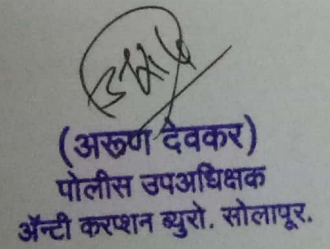 (अरूण देवकर)
पोलीस उपअधिक्षक
ॲन्टी करप्शन ब्युरो. सोलापूर.